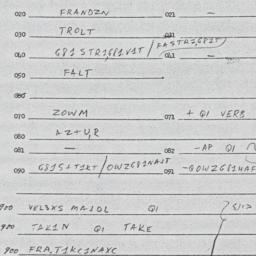 020 FRANDZN 021 —
030 TROLT 031
040 G81STR1,G81V1T/FASTR1,G81T/ 041 —
050 FALT
060
070 ZOWM 071 + Q1 VERB
080 AZ+U,R
081 — 082 -AP Q1
090 G81S+T1KT/OWZG81NAST 091 -GOWZG814AF
900 VELBXS MAJOL Q1
900 TAK1N Q1 TAKE
900 FRA,T1KE1NAXE